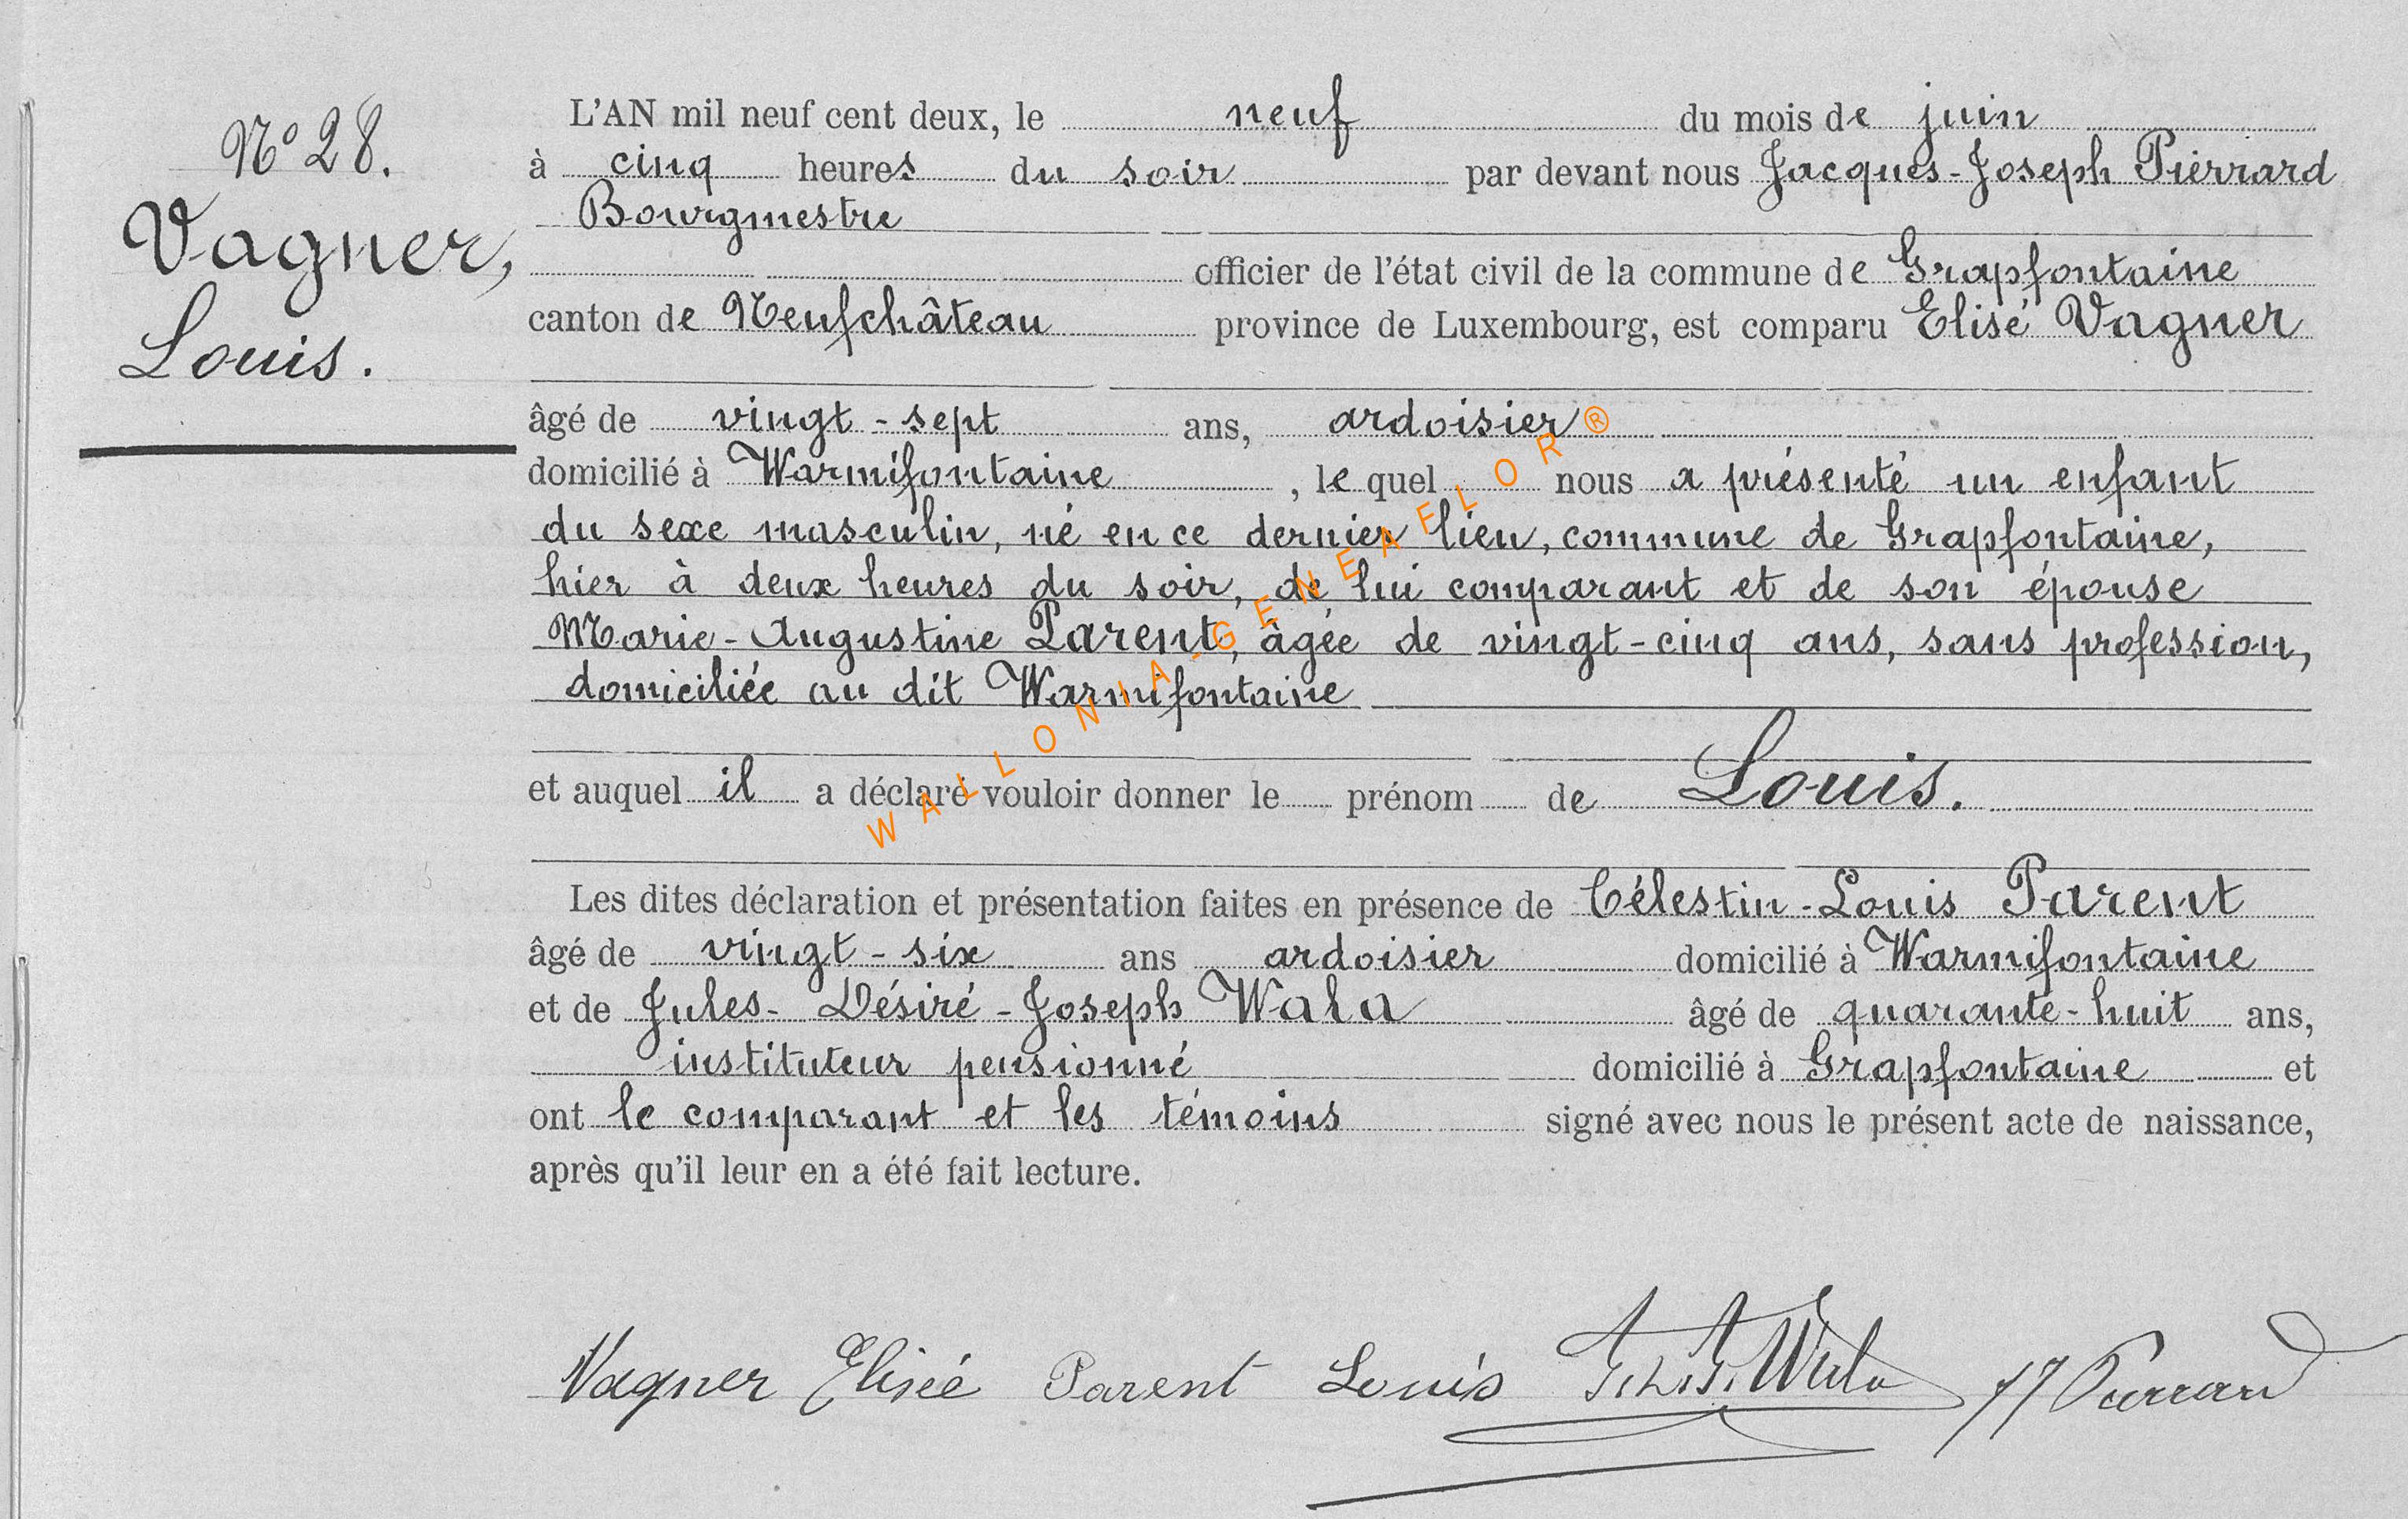 N° 28.
Vagner,
Louis.
L'AN mil neuf cent deux, le neuf du mois de juin
à cinq heures du soir par devant nous Jacques-Joseph Pierrard
Bourgmestre
officier de l'état civil de la commune de Grapfontaine
canton de Neufchâteau province de Luxembourg, est comparu Elisé Vagner
âgé de vingt-sept ans, ardoisier
domicilié à Warmifontaine, le quel nous a présenté un enfant
du sexe masculin, né en ce dernier lieu, commune de Grapfontaine,
hier à deux heures du soir, de lui comparant et de son épouse
Marie-Augustine Parent, âgée de vingt-cinq ans, sans profession,
domiciliée au dit Warmifontaine
et auquel il a déclaré vouloir donner le prénom de Louis.
Les dites déclaration et présentation faites en présence de Célestin-Louis Parent
âgé de vingt-six ans ardoisier domicilié à Warmifontaine
et de Jules-Désiré-Joseph Wala âgé de quarante-huit ans,
instituteur pensionné domicilié à Grapfontaine et
ont le comparant et les témoins signé avec nous le présent acte de naissance,
après qu'il leur en a été fait lecture.
Vagner Elisée Parent Louis Wala Pierrard
WALLONIA-GENEAFLOR®